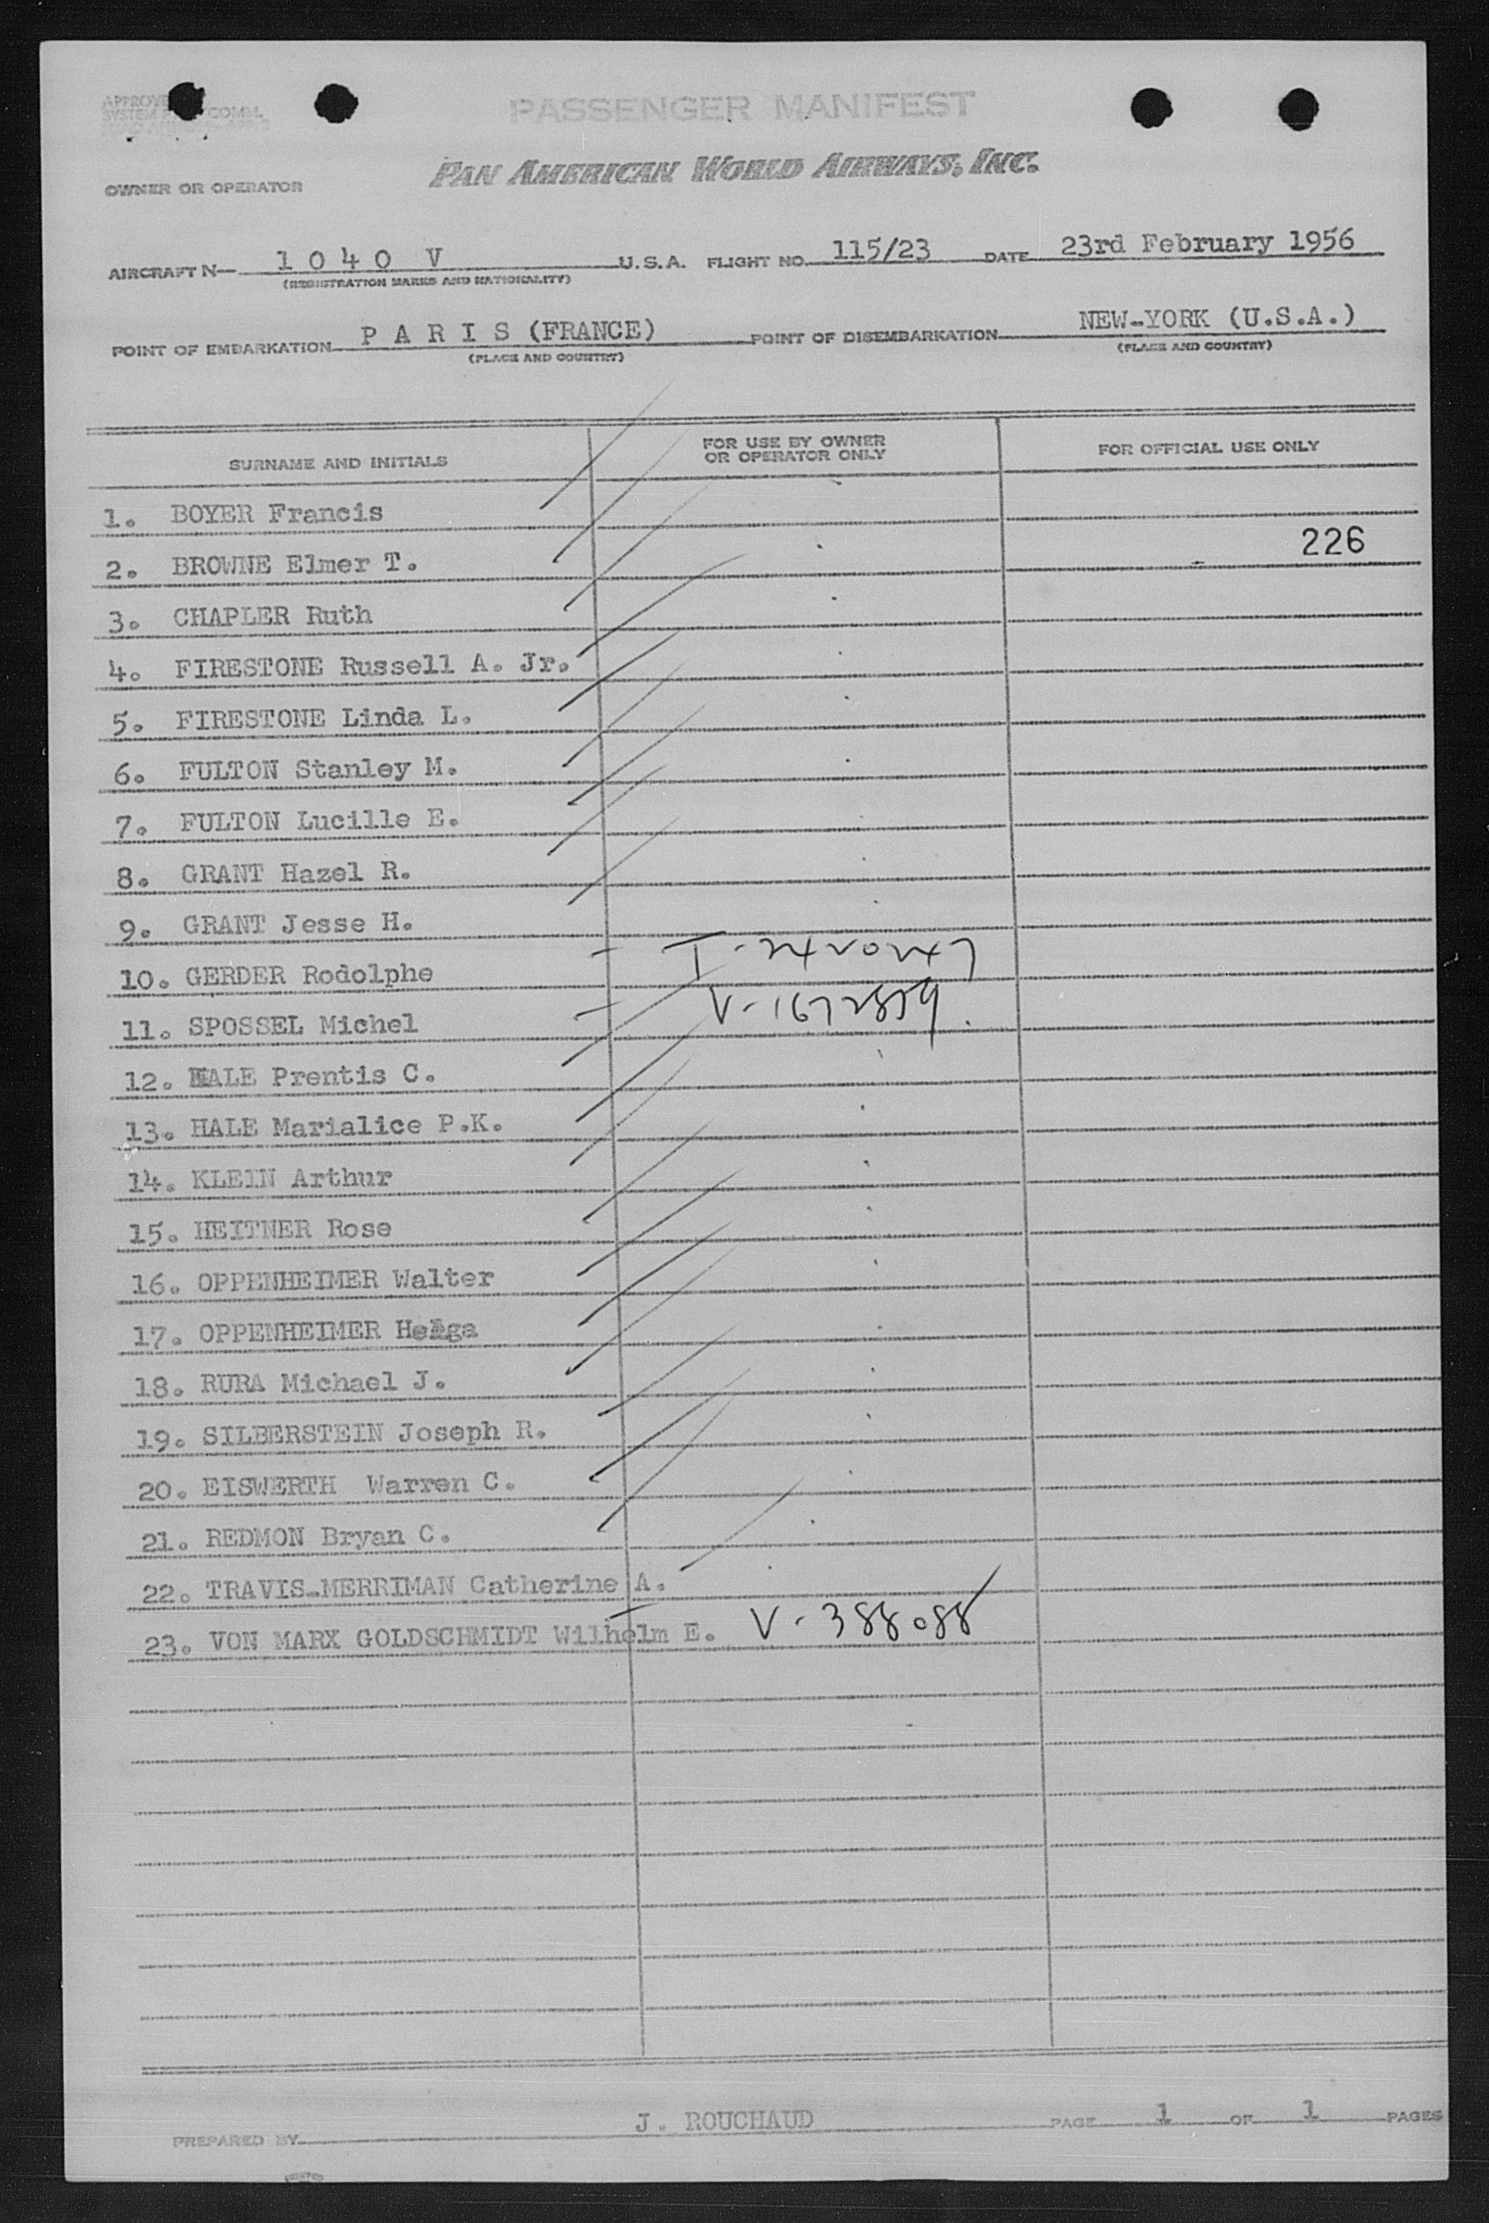 APPROVE
SYSTEM COMM.
PASSENGER MANIFEST
PAN AMERICAN WORLD AIRWAYS, INC.
OWNER OR OPERATOR
AIRCRAFT N— 1 0 4 0 V U.S.A. FLIGHT NO. 115/23 DATE 23rd February 1956
(REGISTRATION MARKS AND NATIONALITY)
POINT OF EMBARKATION P A R I S (FRANCE) POINT OF DISEMBARKATION NEW-YORK (U.S.A.)
(PLACE AND COUNTRY) (PLACE AND COUNTRY)
SURNAME AND INITIALS FOR USE BY OWNER OR OPERATOR ONLY FOR OFFICIAL USE ONLY
1. BOYER Francis
2. BROWNE Elmer T. 226
3. CHAPLER Ruth
4. FIRESTONE Russell A. Jr.
5. FIRESTONE Linda L.
6. FULTON Stanley M.
7. FULTON Lucille E.
8. GRANT Hazel R.
9. GRANT Jesse H.
10. GERDER Rodolphe
11. SPOSSEL Michel
12. HALE Prentis C.
13. HALE Marialice P.K.
14. KLEIN Arthur
15. HEITNER Rose
16. OPPENHEIMER Walter
17. OPPENHEIMER Helga
18. RURA Michael J.
19. SILBERSTEIN Joseph R.
20. EISWERTH Warren C.
21. REDMON Bryan C.
22. TRAVIS-MERRIMAN Catherine A.
23. VON MARX GOLDSCHMIDT Wilhelm E. V-388088
PREPARED BY J. ROUCHAUD PAGE 1 OF 1 PAGES